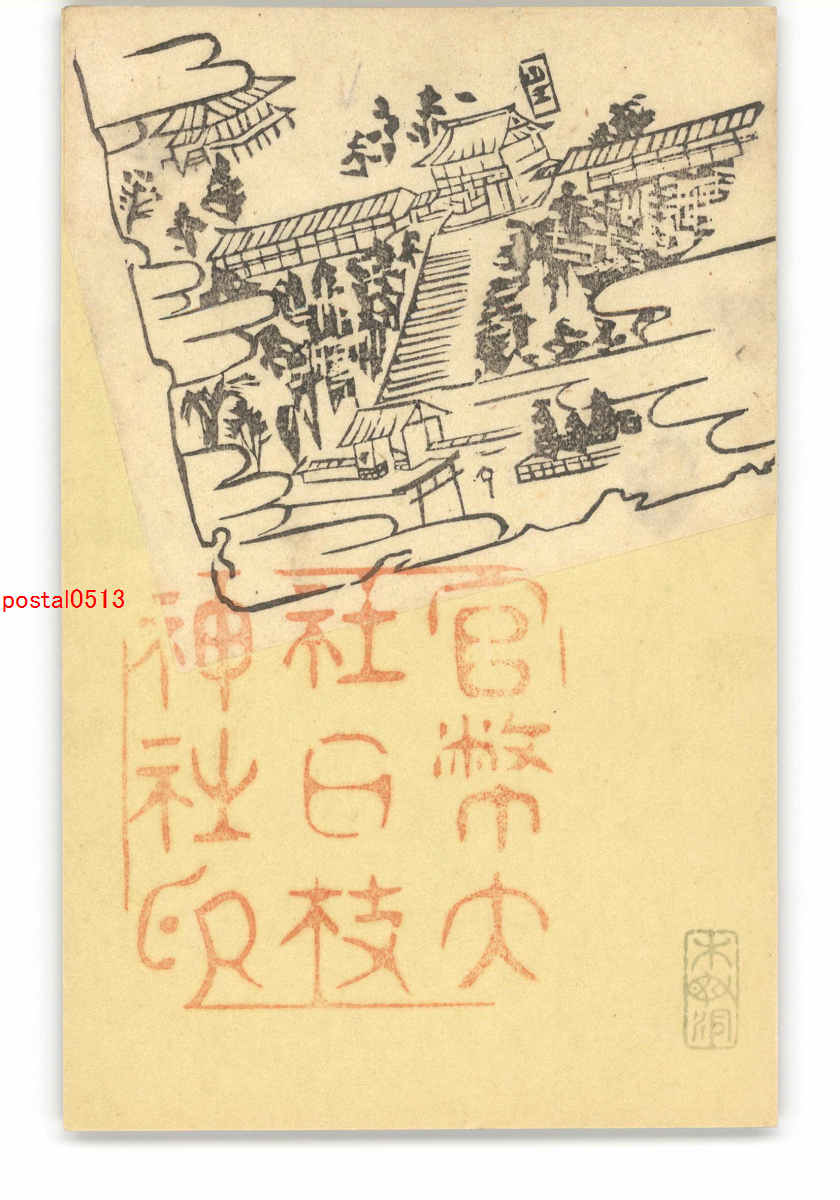 官幣大
社日枝
神社印
postal0513